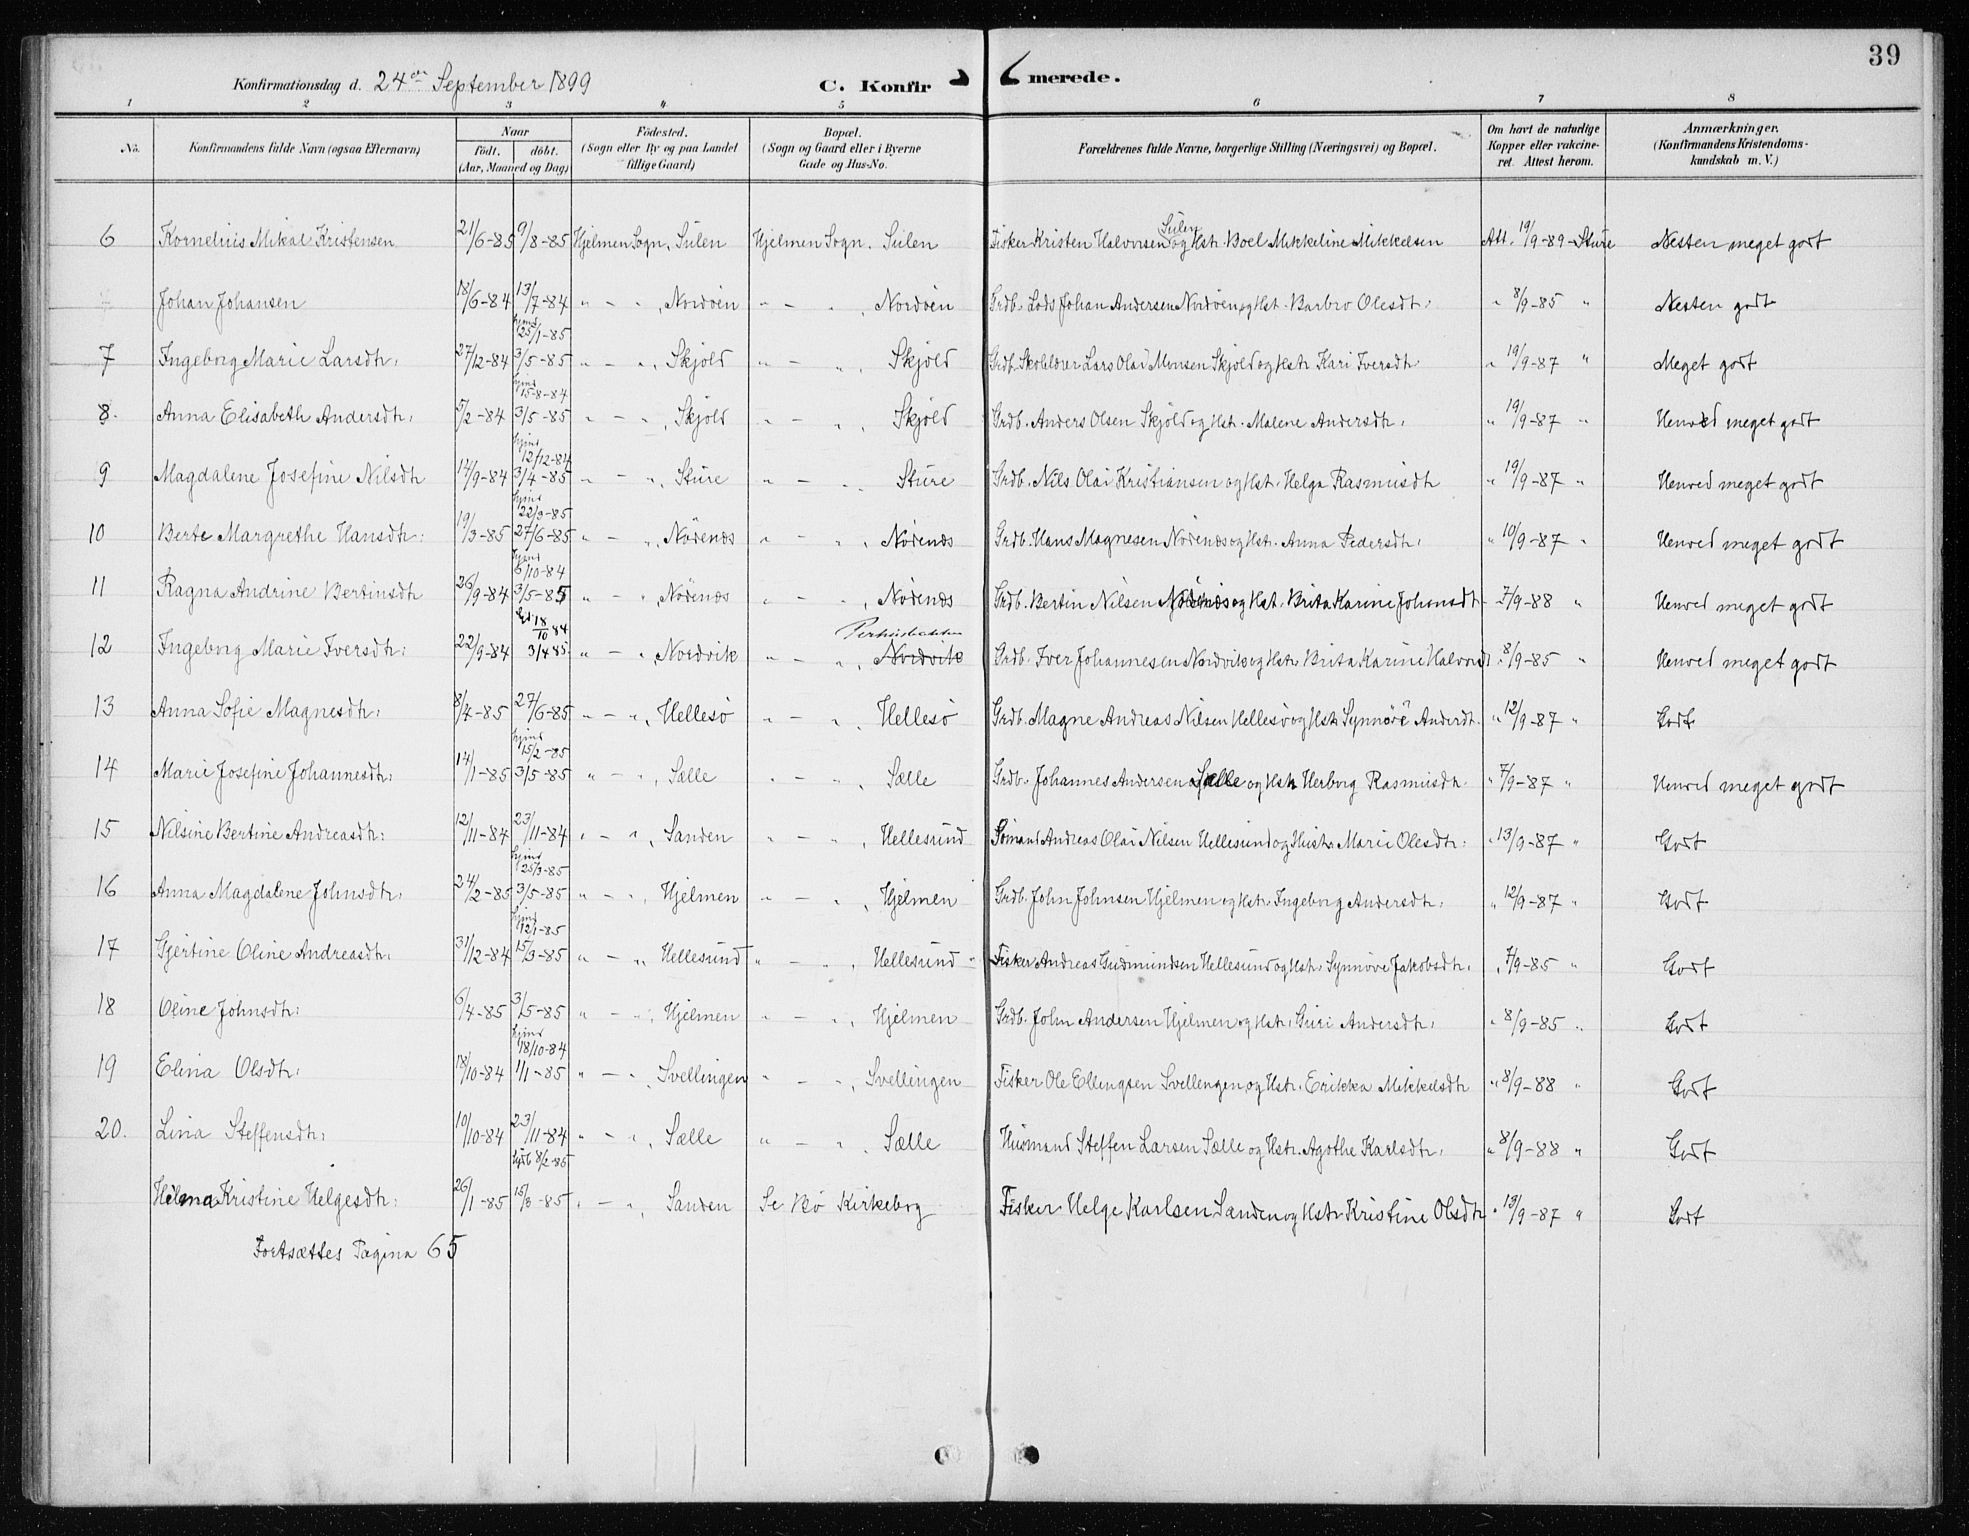 39
Konfirmationsdag d. 24de September 1899 C. Konfirmerede.
1 2 3 4 5 6 7 8
No. Konfirmandens fulde Navn (ogsaa Efternavn) Naar født. døbt. (Aar, Maaned og Dag) Fødested. (Sogn eller By og paa Landet tillige Gaard) Bopæl. (Sogn og Gaard eller i Byerne Gade og Hus-No. Forældrenes fulde Navne, borgerlige Stilling (Næringsvei) og Bopæl. Om havt de naturlige Kopper eller vakcineret. Attest herom. Anmærkninger. (Konfirmandens Kristendomskundskab m. V.)
6 Kornelius Mikal Kristensen 21/6-85 9/8-85 Hjelmen Sogn, Sulen Hjelmen Sogn. Sulen Fisker Kristen Halvorsen Sulen og Hstr. Boel Mikkeline Mikkelsen Att. 19/9-89 Sture Nesten meget godt
Johan Johansen 18/6-84 13/7-84 " - " , Nordøen " - " , Nordøen Grdb. Lods Johan Andersen Nordøen og Hst. Barbro Olesdtr: " 8/9-85 " Nesten godt
7 Ingeborg Marie Larsdtr: 27/12-84 hjmd 25/1-85 3/5-85 " - " , Skjold " - " , Skjold Grdb. Skolelærer Lars Olai Monsen Skjold og Hstr. Kari Iversdtr " 19/9-87 " Meget godt
8. Anna Elisabeth Andersdtr: 5/2-84 hjmd 15-8-84 3/5-85 " - " , Skjold " - " , Skjold Grdb. Anders Olsen Skjold og Hstr. Malene Andersdtr: " 19/9-87 " Henved meget godt
9 Magdalene Josefine Nilsdtr 14/9-84 hjmd 12/12-84 3/4-85 " - " , Sture " - " , Sture Grdb. Nils Olai Kristiansen og Hst. Helga Rasmusdtr " 19/9-87 " Henved meget godt
10 Berte Margrethe Hansdtr: 19/3-85 hjmd 22/3-85 27/6-85 " - " , Nörenæs " - " , Nörenæs Grdb. Hans Magnesen Nörenæs og Hstr. Anna Pedersdtr: " 10/9-87 " Henved meget godt
11 Ragna Andrine Bertinsdtr 26/9-84 hjmd 6/10-84 3/5-85 " - " , Nörenæs " - " , Nörenæs Grdb. Bertin Nilsen Nörenæs og Hst. Brita Karine Johansdtr " 7/9-88 " Henved meget godt
12 Ingeborg Marie Iversdtr: 22/9-84 18/10 84 3/4 85. " - " , Nordvik " - " , Nordvik Grdb. Iver Johannesen Nordvik og Hstr Brita Karine Halvorsdt " 8/9-85 " Henved meget godt
13 Anna Sofie Magnesdtr: 8/4-85 27/6-85 " - " , Hellesø " - " , Hellesø Grdb. Magne Andreas Nilsen Hellesø og Hstr Synnöve Anderdt. " 12/9-87 " Godt
14 Marie Josefine Johannesdtr: 14/1-85 hjmd 15/2-85 3/5-85 " - " , Sælle " - " , Sælle Grdb. Johannes Andersen Sælle og Hstr Herborg Rasmusdtr. " 7/9-87 " Henved meget godt
15 Nilsine Bertine Andreasdtr: 12/11-84 23/11-84 " - " , Sanden " - " , Hellesund Sømand Andreas Olai Nilsen Hellesund og Hustr Marie Olesdtr: " 13/9-87 " Godt
16 Anna Magdalene Johnsdtr: 24/2-85 hjmd 25/3-85 3/5-85 " - " , Hjelmen " - " , Hjelmen Grdb. John Johnsen Hjelmen og Hstr. Ingeborg Andersdtr: " 12/9-87 " Godt
17 Gjertine Oline Andreasdtr: 31/12-84 hjmd 12/1-85 15/3-85 " - " , Hellesund " - " , Hellesund Fisker Andreas Gudmundsen Hellesund og Hstr. Synnöve Jakobsdtr: " 7/9-85 " Godt
18 Oline Johnsdtr: 6/4-85 3/5-85 " - " , Hjelmen " - " , Hjelmen Grdb. John Andersen Hjelmen og Hstr: Guri Andersdtr: " 8/9-85 " Godt
19 Elina Olsdtr: 18/10-84 hjmd 18/10-84 1/1-85 " - " , Svellingen " - " , Svellingen Fisker Ole Ellingsen Svellengen og Hstr. Erikka Mikkelsdtr " 8/9-88 " Godt
20. Lina Steffensdtr: 10/10-84 23/11-84 " - " , Sælle " - " , Sælle Husmand Steffen Larsen Sælle og Hstr. Agathe Karlsdtr: " 8/9-88 " Godt
Helma Kristine Helgesdtr: 26/1-85 8/2-85 15/3-85 " - " , Sanden Se Bø Kirkebog Fisker Helge Karlsen Sanden og Hstr Kristine Olsdtr " 13/9-87 " Godt
Fortsættes Pagina 65